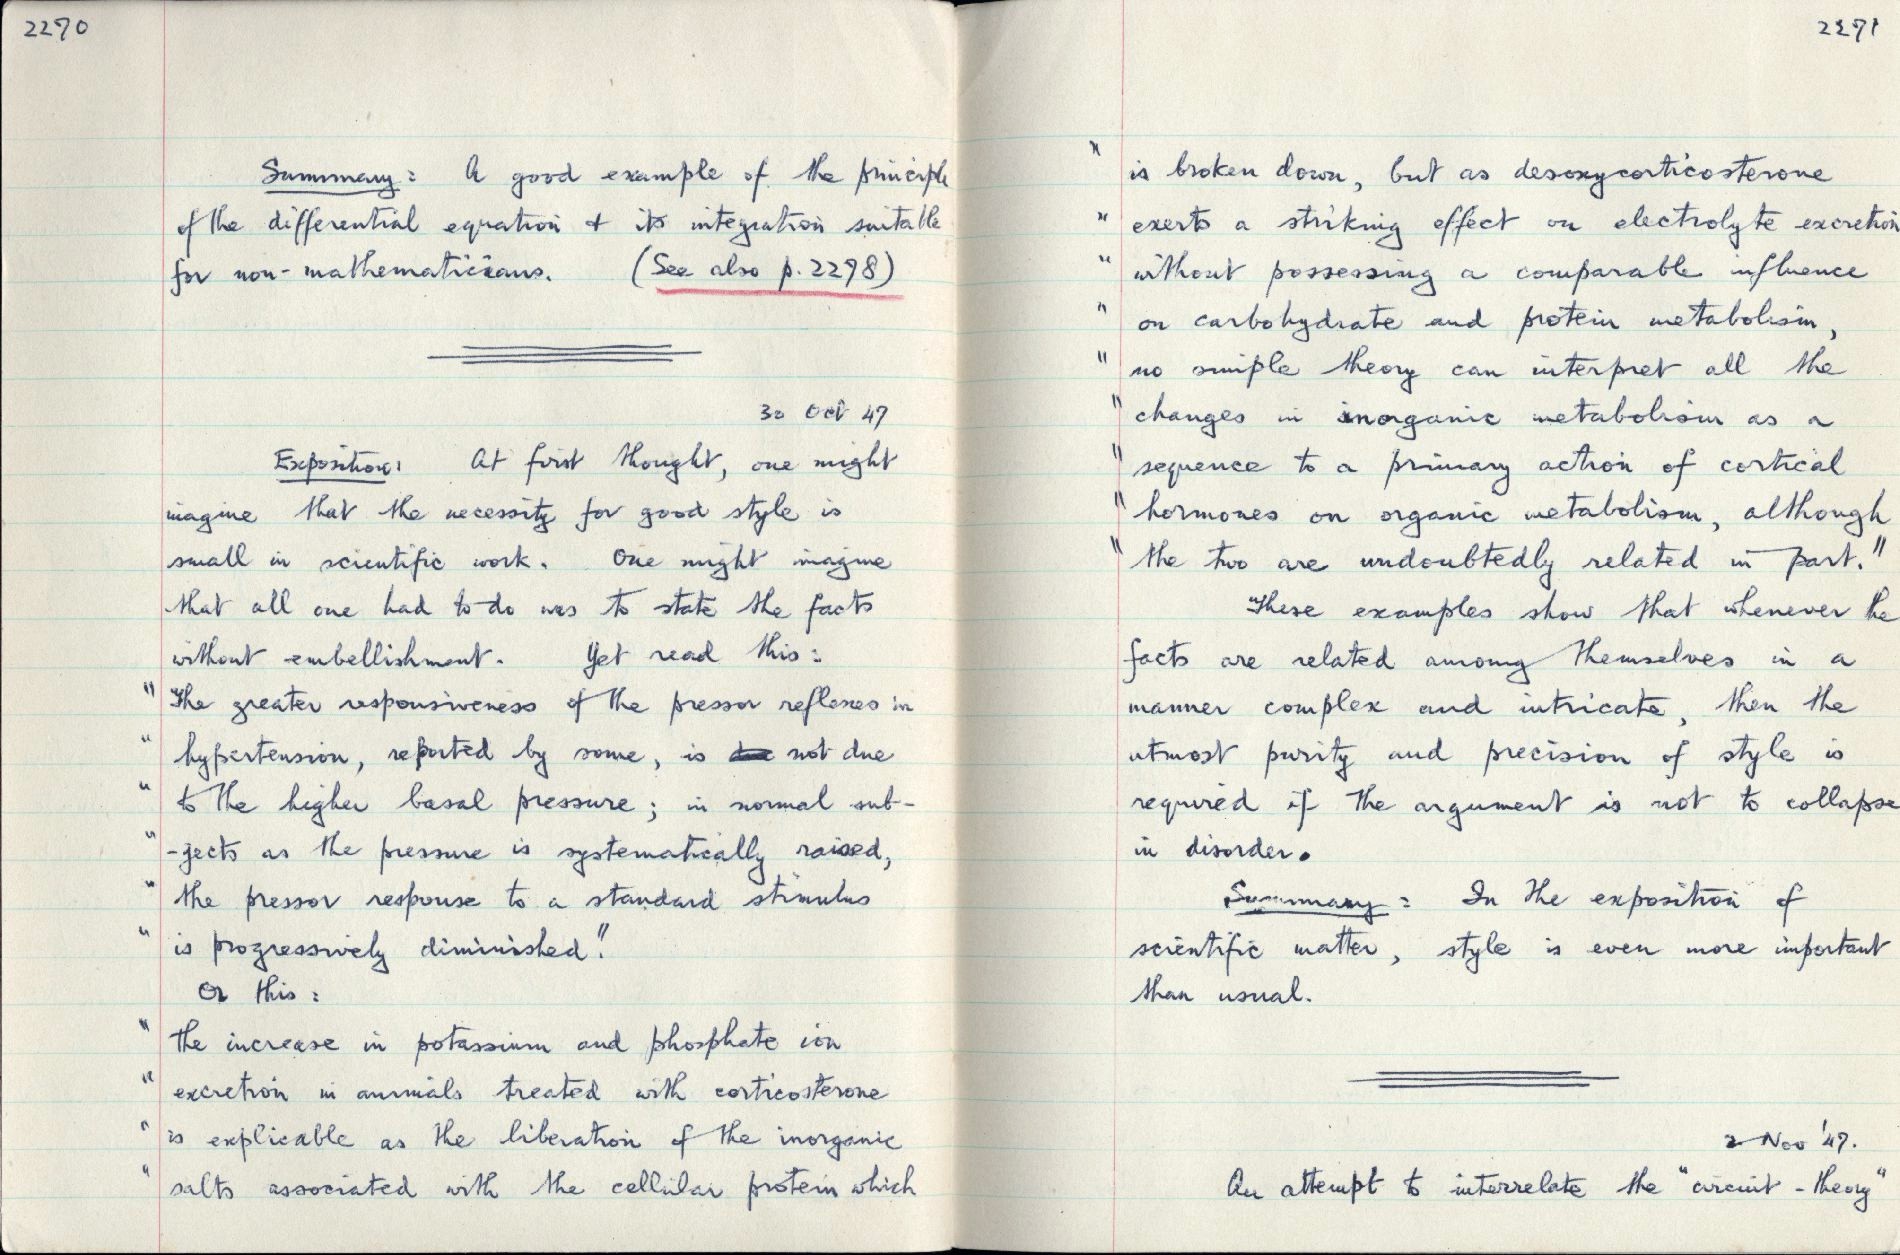 2270
Summary: A good example of the principle
of the differential equation + its integration suitable
for non-mathematicians. (See also p.2298)
30 Oct 47
Exposition: At first thought, one might
imagine that the necessity for good style is
small in scientific work. One might imagine
that all one had to do was to state the facts
without embellishment. Yet read this:
" The greater responsiveness of the pressor reflexes in
" hypertension, reported by some, is not due
" to the higher basal pressure; in normal sub-
" -jects as the pressure is systematically raised,
" the pressor response to a standard stimulus
" is progressively diminished."
Or this:
" The increase in potassium and phosphate ion
" excretion in animals treated with corticosterone
" is explicable as the liberation of the inorganic
" salts associated with the cellular protein which
2271
" is broken down, but as desoxycorticosterone
" exerts a striking effect on electrolyte excretion
" without possessing a comparable influence
" on carbohydrate and protein metabolism,
" no simple theory can interpret all the
" changes in inorganic metabolism as a
" sequence to a primary action of cortical
" hormones on organic metabolism, although
" the two are undoubtedly related in part."
These examples show that whenever the
facts are related among themselves in a
manner complex and intricate, then the
utmost purity and precision of style is
required if the argument is not to collapse
in disorder.
Summary: In the exposition of
scientific matter, style is even more important
than usual.
2 Nov '47.
An attempt to interrelate the "circuit-theory"